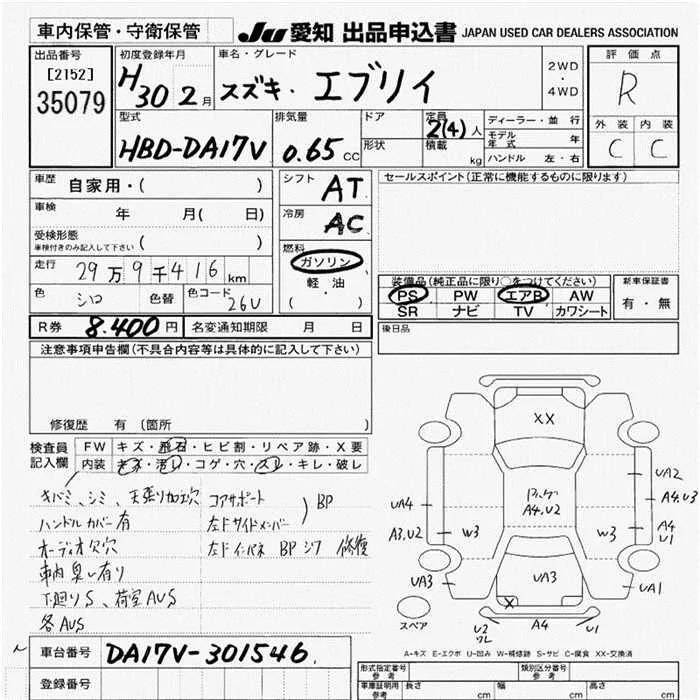 車内保管・守衛保管
JU 愛知 出品申込書 JAPAN USED CAR DEALERS ASSOCIATION
出品番号
[2152]
35079
初度登録年月
H30 2月
車名・グレード
スズキ・エブリイ
2WD
・
4WD
評価点
R
外装 内装
C C
型式
HBD-DA17V
排気量
0.65 CC
ドア
形状
定員
2(4)人
積載
kg
ディーラー・並行
モデル年式 年
ハンドル 左・右
車歴 自家用・( )
車検 年 月( 日)
受検形態
車検付きのみ記入して下さい ( )
走行 29万9千416km
色 シロ 色替 色コード 26U
シフト AT
冷房 AC
燃料
ガソリン
軽・油
( ・ )
セールスポイント(正常に機能するものに限ります)
装備品(純正品に限り○をつけてください)
PS PW エアB AW
SR ナビ TV カワシート
新車保証書
有・無
後日品
R券 8.400円 名変通知期限 月 日
注意事項申告欄(不具合内容等は具体的に記入して下さい)
修復歴 有 〔箇所 〕
検査員記入欄
FW キズ・飛石・ヒビ割・リペア跡・X要
内装 キズ・汚レ・コゲ・穴・スレ・キレ・破レ
キバミ、シミ、天張り加工穴
ハンドルカバー有
オーディオ欠穴
車内臭い有り
下廻りS、荷室AUS
各AUS
コアサポート
左Fサイドメンバー
)BP
左Fインパネ BP ジワ 修復
XX
A4.U2
UA4
A3.U2
W3
W3
UA2
A4.U3
A4
U1
UA3
UA3
UA1
X
U2
ワレ
A4
U1
スペア
A-キズ E-エクボ U-凹み W-補修跡 S-サビ C-腐食 XX-交換済
車台番号 DA17V-301546
登録番号
形式指定番号 参考
類別区分番号 参考
車庫証明用 参考 長さ cm 幅 cm 高さ cm